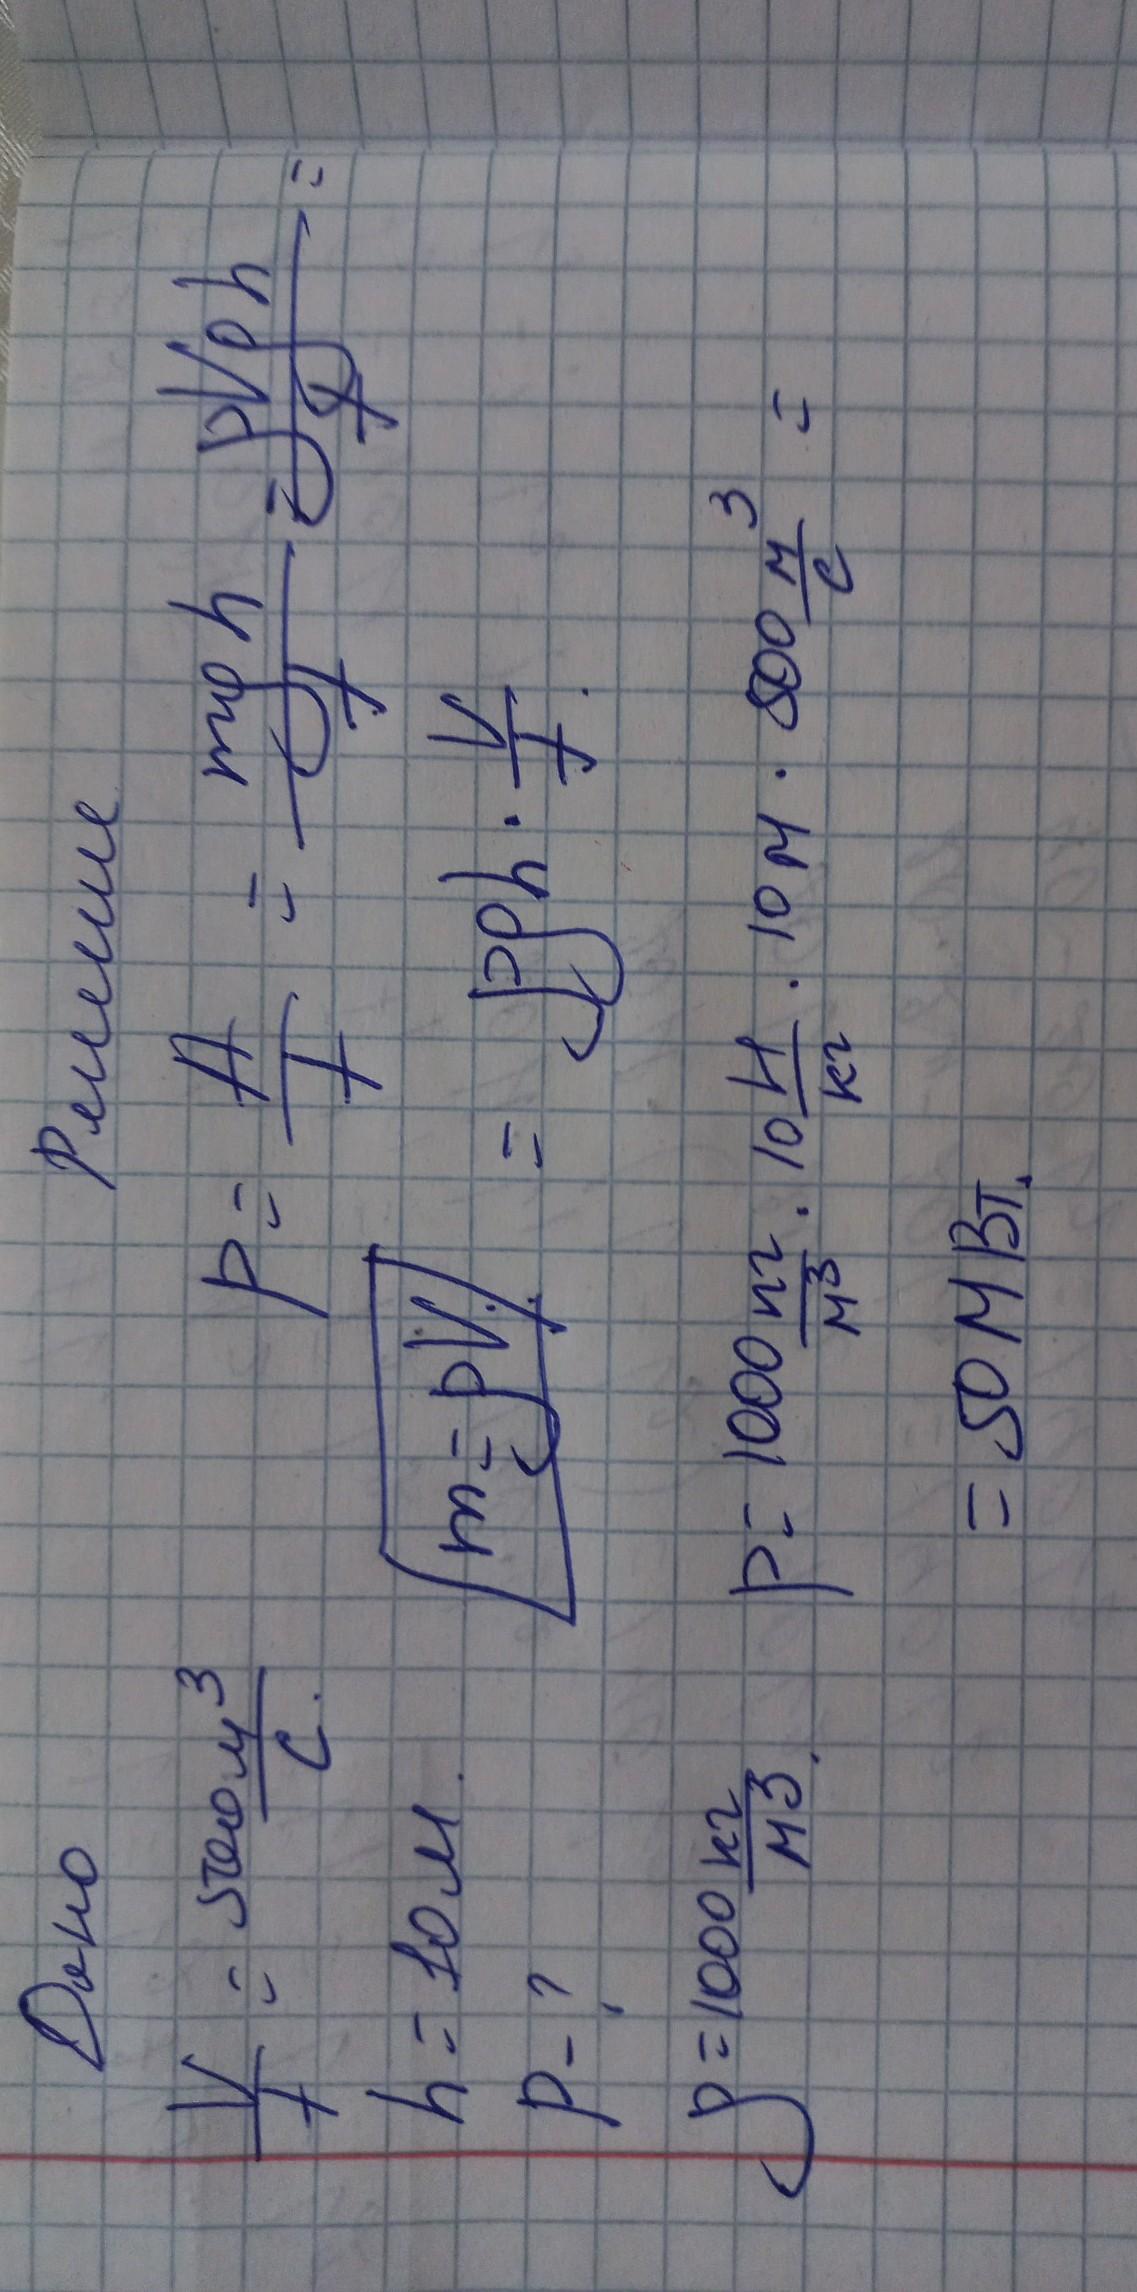 Дано
V/t = 500 м³/с.
h = 10 м.
P - ?
ρ = 1000 кг/м³.
Решение
P = A/t = mgh/t = ρVgh/t =
m = ρV.
= ρgh · V/t.
P = 1000 кг/м³ · 10 Н/кг · 10 м · 500 м³/с =
= 50 МВт.